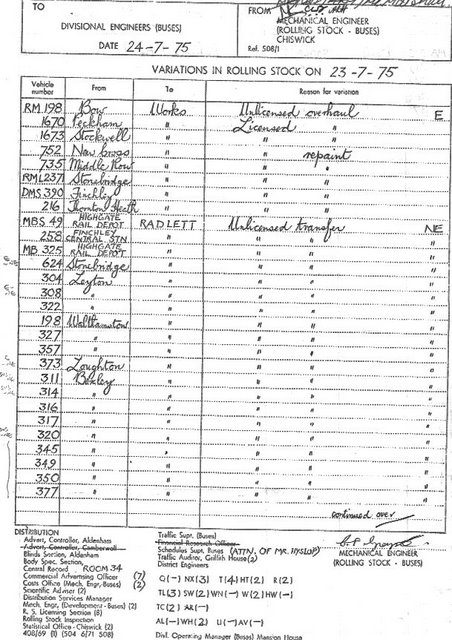 TO
DIVISIONAL ENGINEERS (BUSES)
DATE 24-7-75
FROM
MECHANICAL ENGINEER
(ROLLING STOCK - BUSES)
CHISWICK
Ref. 508/1
VARIATIONS IN ROLLING STOCK ON 23-7-75
Vehicle number From To Reason for variation
RM 198 Bow Works Unlicensed overhaul E
1670 Peckham " Licensed "
1673 Stockwell " " "
752 New Cross " " repaint
735 Middle Row " " "
RML 237 Stonebridge " " "
DMS 390 Finchley " " "
216 Thornton Heath " " "
MBS 49 HIGHGATE RAIL DEPOT RADLETT Unlicensed transfer NE
258 FINCHLEY CENTRAL STN " " " "
MB 325 HIGHGATE RAIL DEPOT " " " "
624 Stonebridge " " " "
304 Leyton " " " "
308 " " " " "
322 " " " " "
198 Walthamstow " " " "
327 " " " " "
357 " " " " "
373 Loughton " " " "
311 Bexley " " " "
314 " " " " "
316 " " " " "
317 " " " " "
320 " " " " "
345 " " " " "
349 " " " " "
350 " " " " "
377 " " " " "
continued over
DISTRIBUTION
Advert. Controller, Aldenham
Advert. Controller, Camberwell
Blinds Section, Aldenham
Body Spec. Section,
Central Record ROOM 34
Commercial Advertising Officer (7)
Costs Office (Mech. Engr. Buses) (2)
Scientific Adviser (2)
Distribution Services Manager
Mech. Engr. (Development - Buses) (2)
R. S. Licensing Section (8)
Rolling Stock Inspection
Statistical Office - Chiswick (2)
408/69 (1) (504 6/71 508)
Traffic Supt. (Buses)
Financial Research Officer
Schedules Supt. Buses (ATTN. OF MR. HYSLOP)
Traffic Auditor, Griffith House (2)
District Engineers
Q (-) NX (3) T (4) HT (2) R (2)
TL (3) SW (2) WN (-) W (2) HW (-)
TC (2) AR (-)
AL (-) WH (2) U (-) AV (-)
Dist. Operating Manager (Buses) Mansion House
MECHANICAL ENGINEER
(ROLLING STOCK - BUSES)